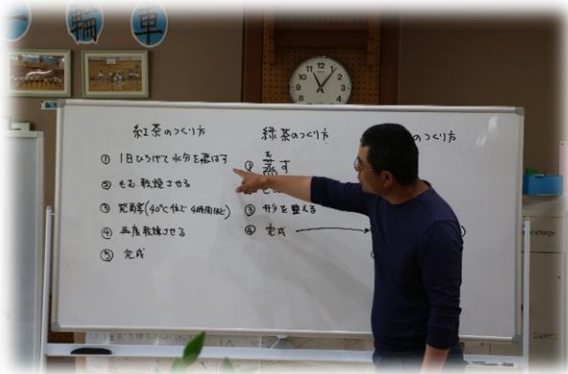 一輪車
紅茶のつくり方
① 1日ひろげて水分を飛ばす
② もむ、乾燥させる
③ 発酵(40℃位で4時間ほど)
④ 再度乾燥させる
⑤ 完成
緑茶のつくり方
① 蒸す
②
③ 形を整える
④ 完成 →
のつくり方